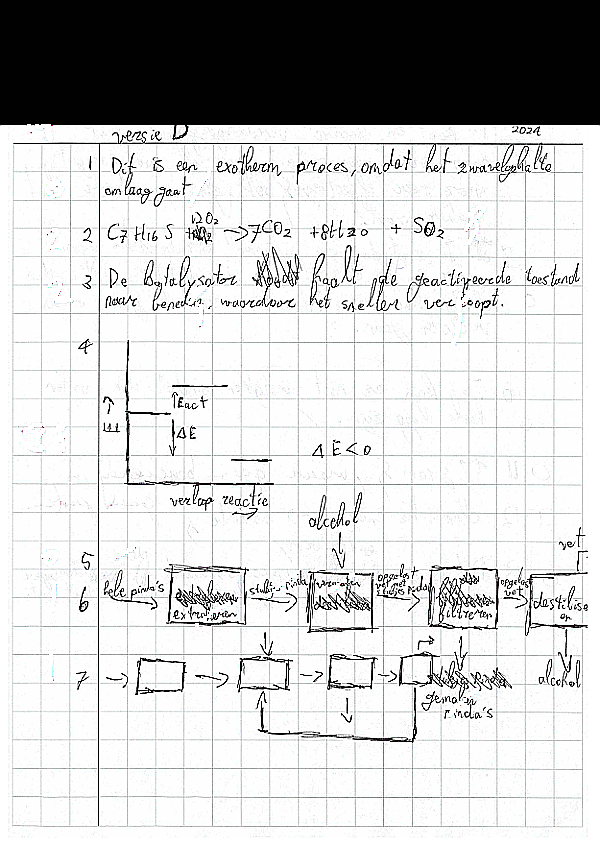 versie D 2024
1 Dit is een exotherm proces, omdat het zwavelgehalte
omlaag gaat
2 C7 H16 S + 12O2 → 7CO2 + 8H2O + SO2
3 De katalysator haalt de geactiveerde toestand
naar beneden, waardoor het sneller verloopt.
4
↑ E
↑Eact
↓ ΔE
ΔE<0
verlap reactie →
alcohol
5
vet
6 hele pinda's → extraheren → pinda → opgelost vet met → filtreren → opgelost vet → destilleren
alcohol
7
gemalen
pinda's